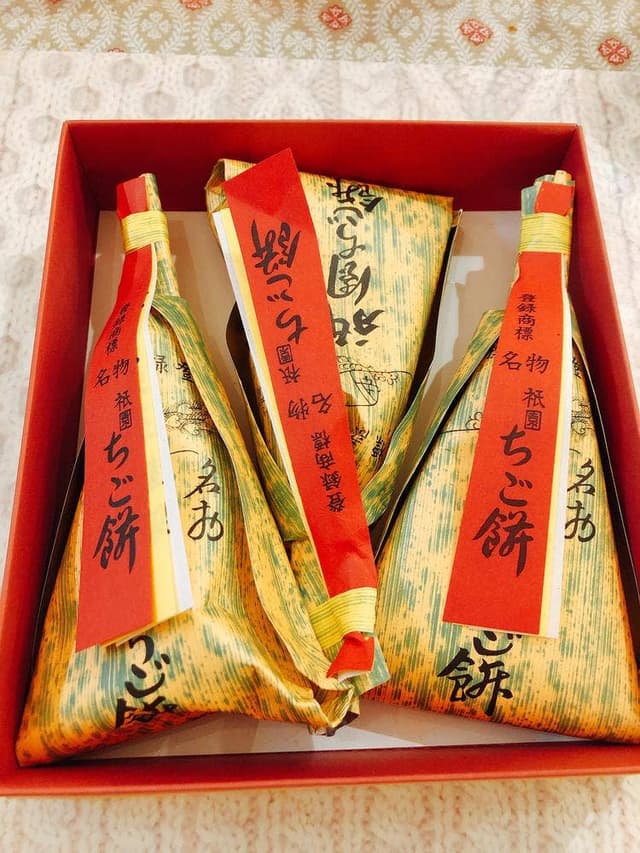 登録商標
名物
祇園
ちご餅
名物
ちご餅
登録商標
名物
祇園
ちご餅
祇園ちご餅
登録商標
名物
祇園
ちご餅
名物
ご餅